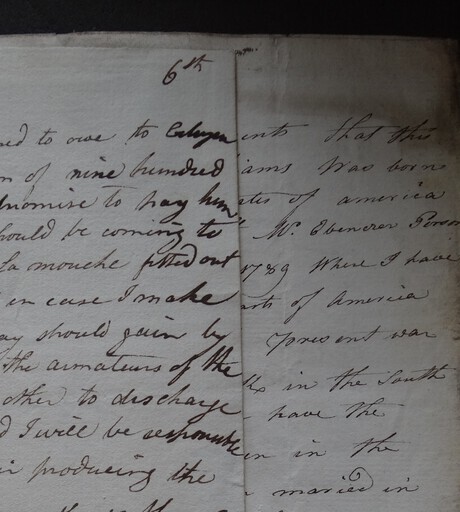 6th
ed to owe to Citizen
m of nine hundred
promise to pay him
should be coming to
la mouche fitted out
in case I make
ay should gain by
the armateurs of the
other to discharge
d I will be responsible
in producing the
ents that this
iams Was born
ates of america
Mr. Ebenezer
1789 Where I have
arts of America
present war
in the South
have the
en in the
maried in